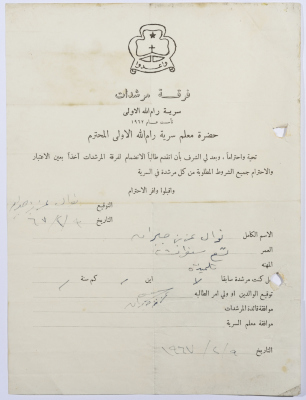 واعدوا
فرقة مرشدات
سرية رام الله الاولى
تأسست عام ١٩٢٧
حضرة معلم سرية رام الله الاولى المحترم
تحية واحتراما ، وبعد لي الشرف بأن اتقدم طالباً الانضمام لفرقة المرشدات آخذاً بعين الاعتبار
والاحترام جميع الشروط المطلوبة من كل مرشدة في السرية
واقبلوا وافر الاحترام
التوقيع نوال عزيز
التاريخ
الاسم الكامل نوال عزيز
العمر تسع سنوات
المهنه تلميذة
هل كنت مرشدة سابقا لا اين / كم سنة /
توقيع الوالدين او ولي امر الطالبه
موافقة قائدة المرشدات
موافقة معلم السرية
التاريخ ١٩٦٧/٢/